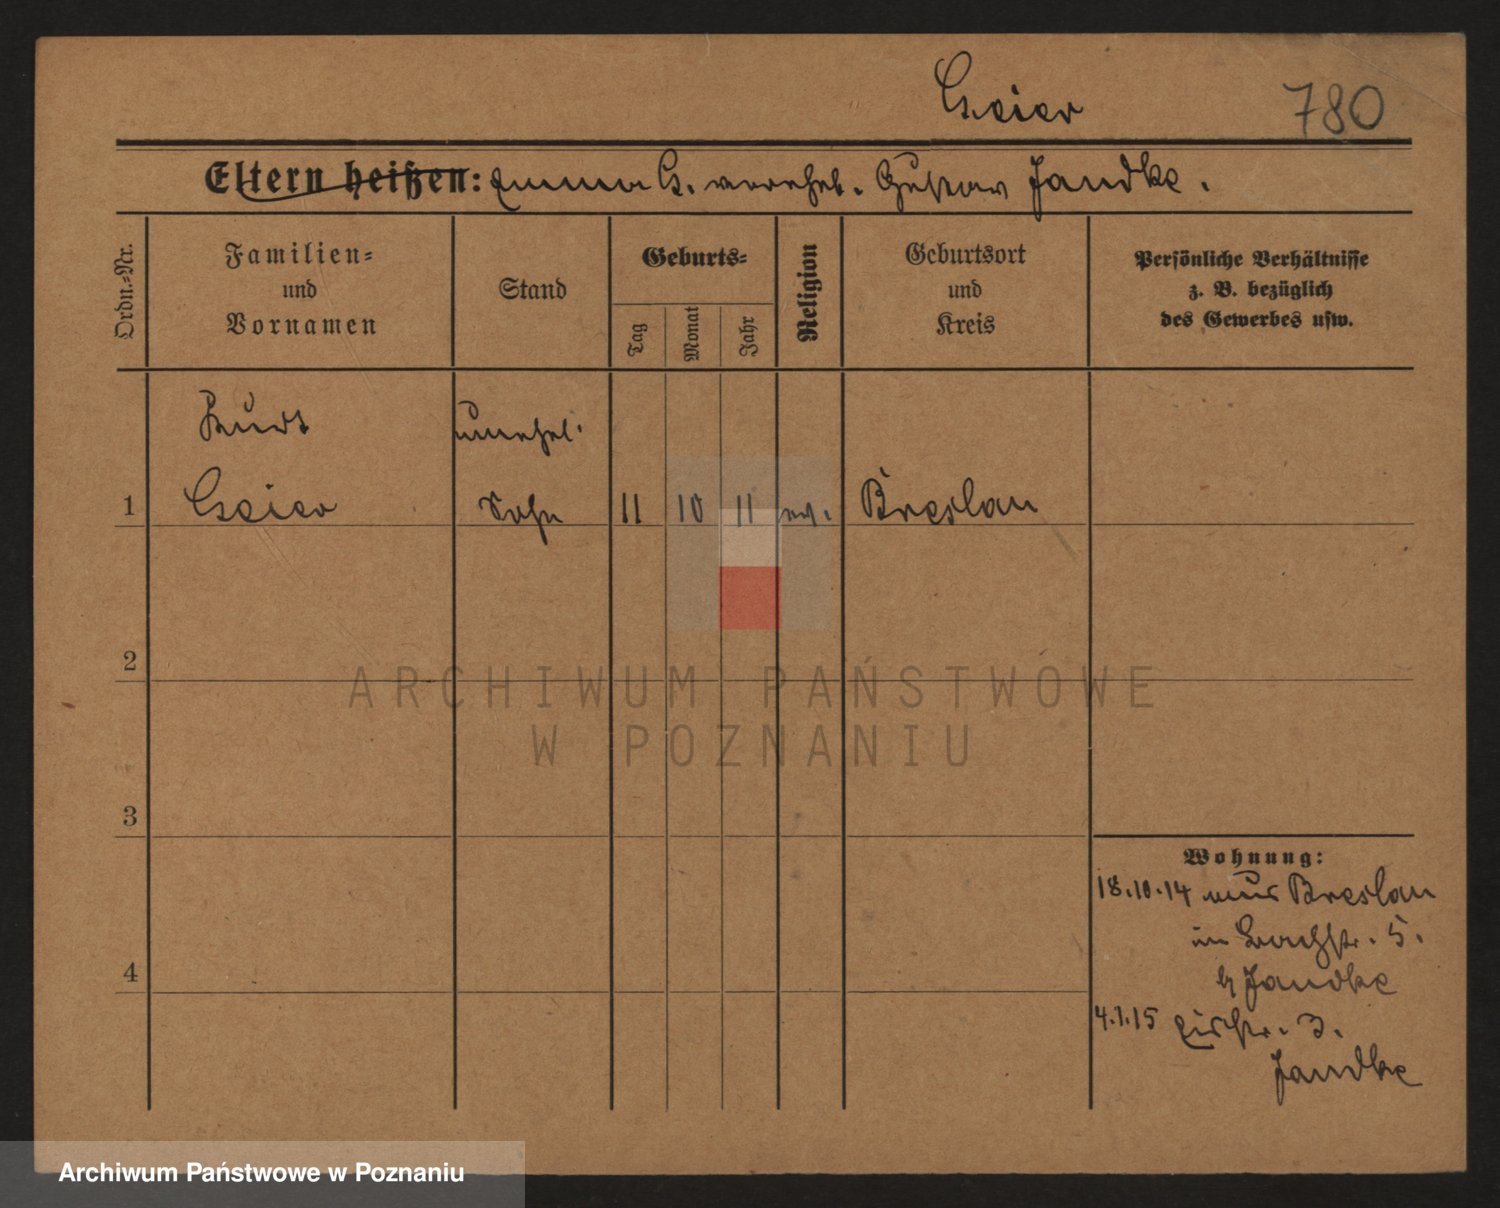 Geier 780
Eltern heißen: Emma G. verehel. Gustav Jandke.
Ordn.=Nr.
Familien=
und
Vornamen
Stand
Geburts=
Tag
Monat
Jahr
Religion
Geburtsort
und
Kreis
Persönliche Verhältnisse
z. B. bezüglich
des Gewerbes usw.
Kurt unehel.
1 Geier Sohn 11 10 11 ev. Breslau
2
3
4
Wohnung:
18.10.14 aus Breslau
in Bachstr. 5.
b/ Jandke
4.1.15 3.
Jandke
ARCHIWUM PAŃSTWOWE
W POZNANIU
Archiwum Państwowe w Poznaniu